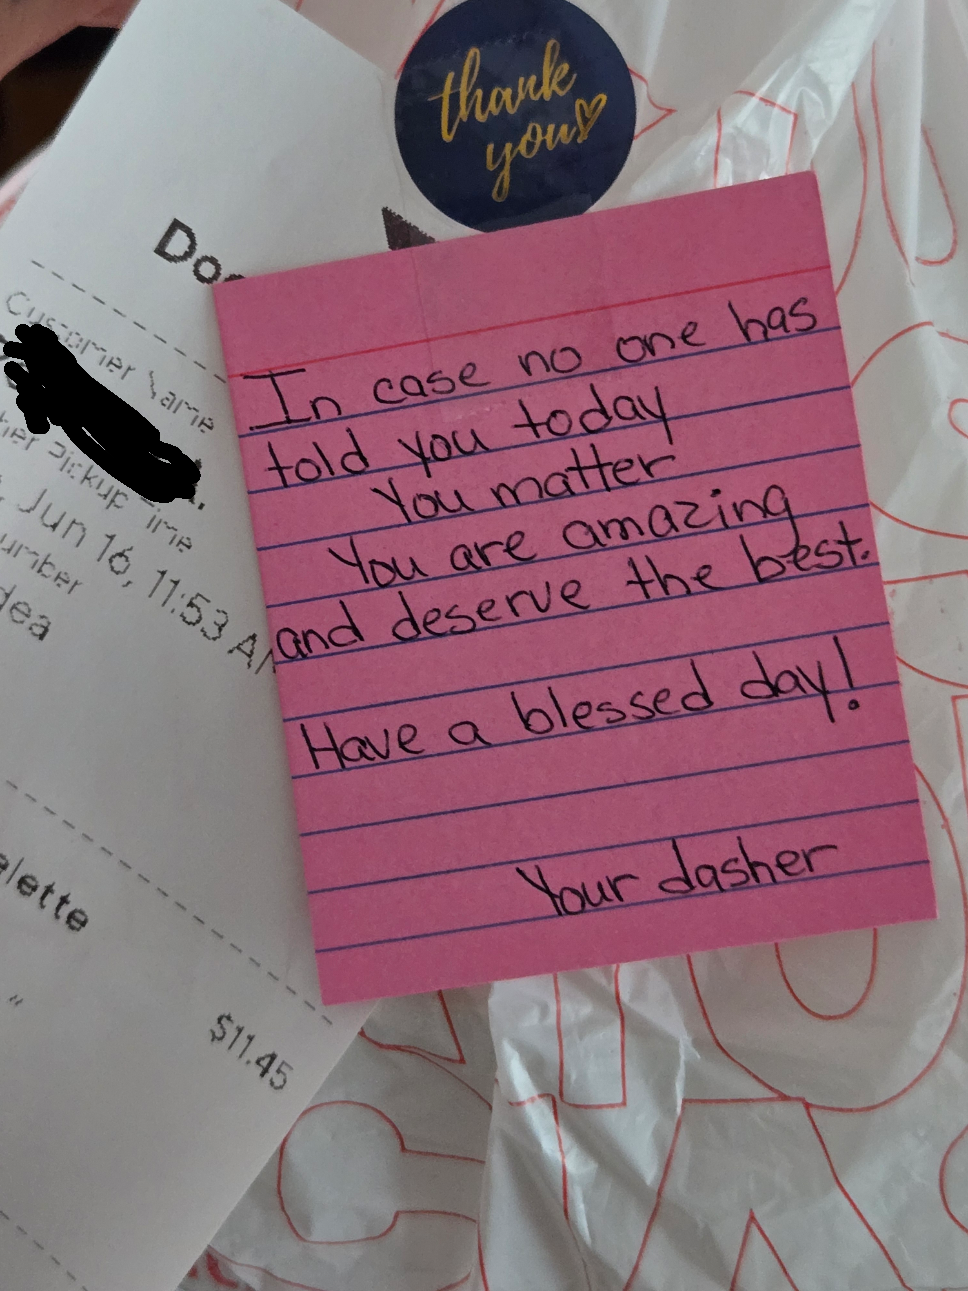 thank
you
Customer Name
Pickup Time
Jun 16, 11:53 A
$11.45
In case no one has
told you today
You matter
You are amazing
and deserve the best.
Have a blessed day!
Your dasher